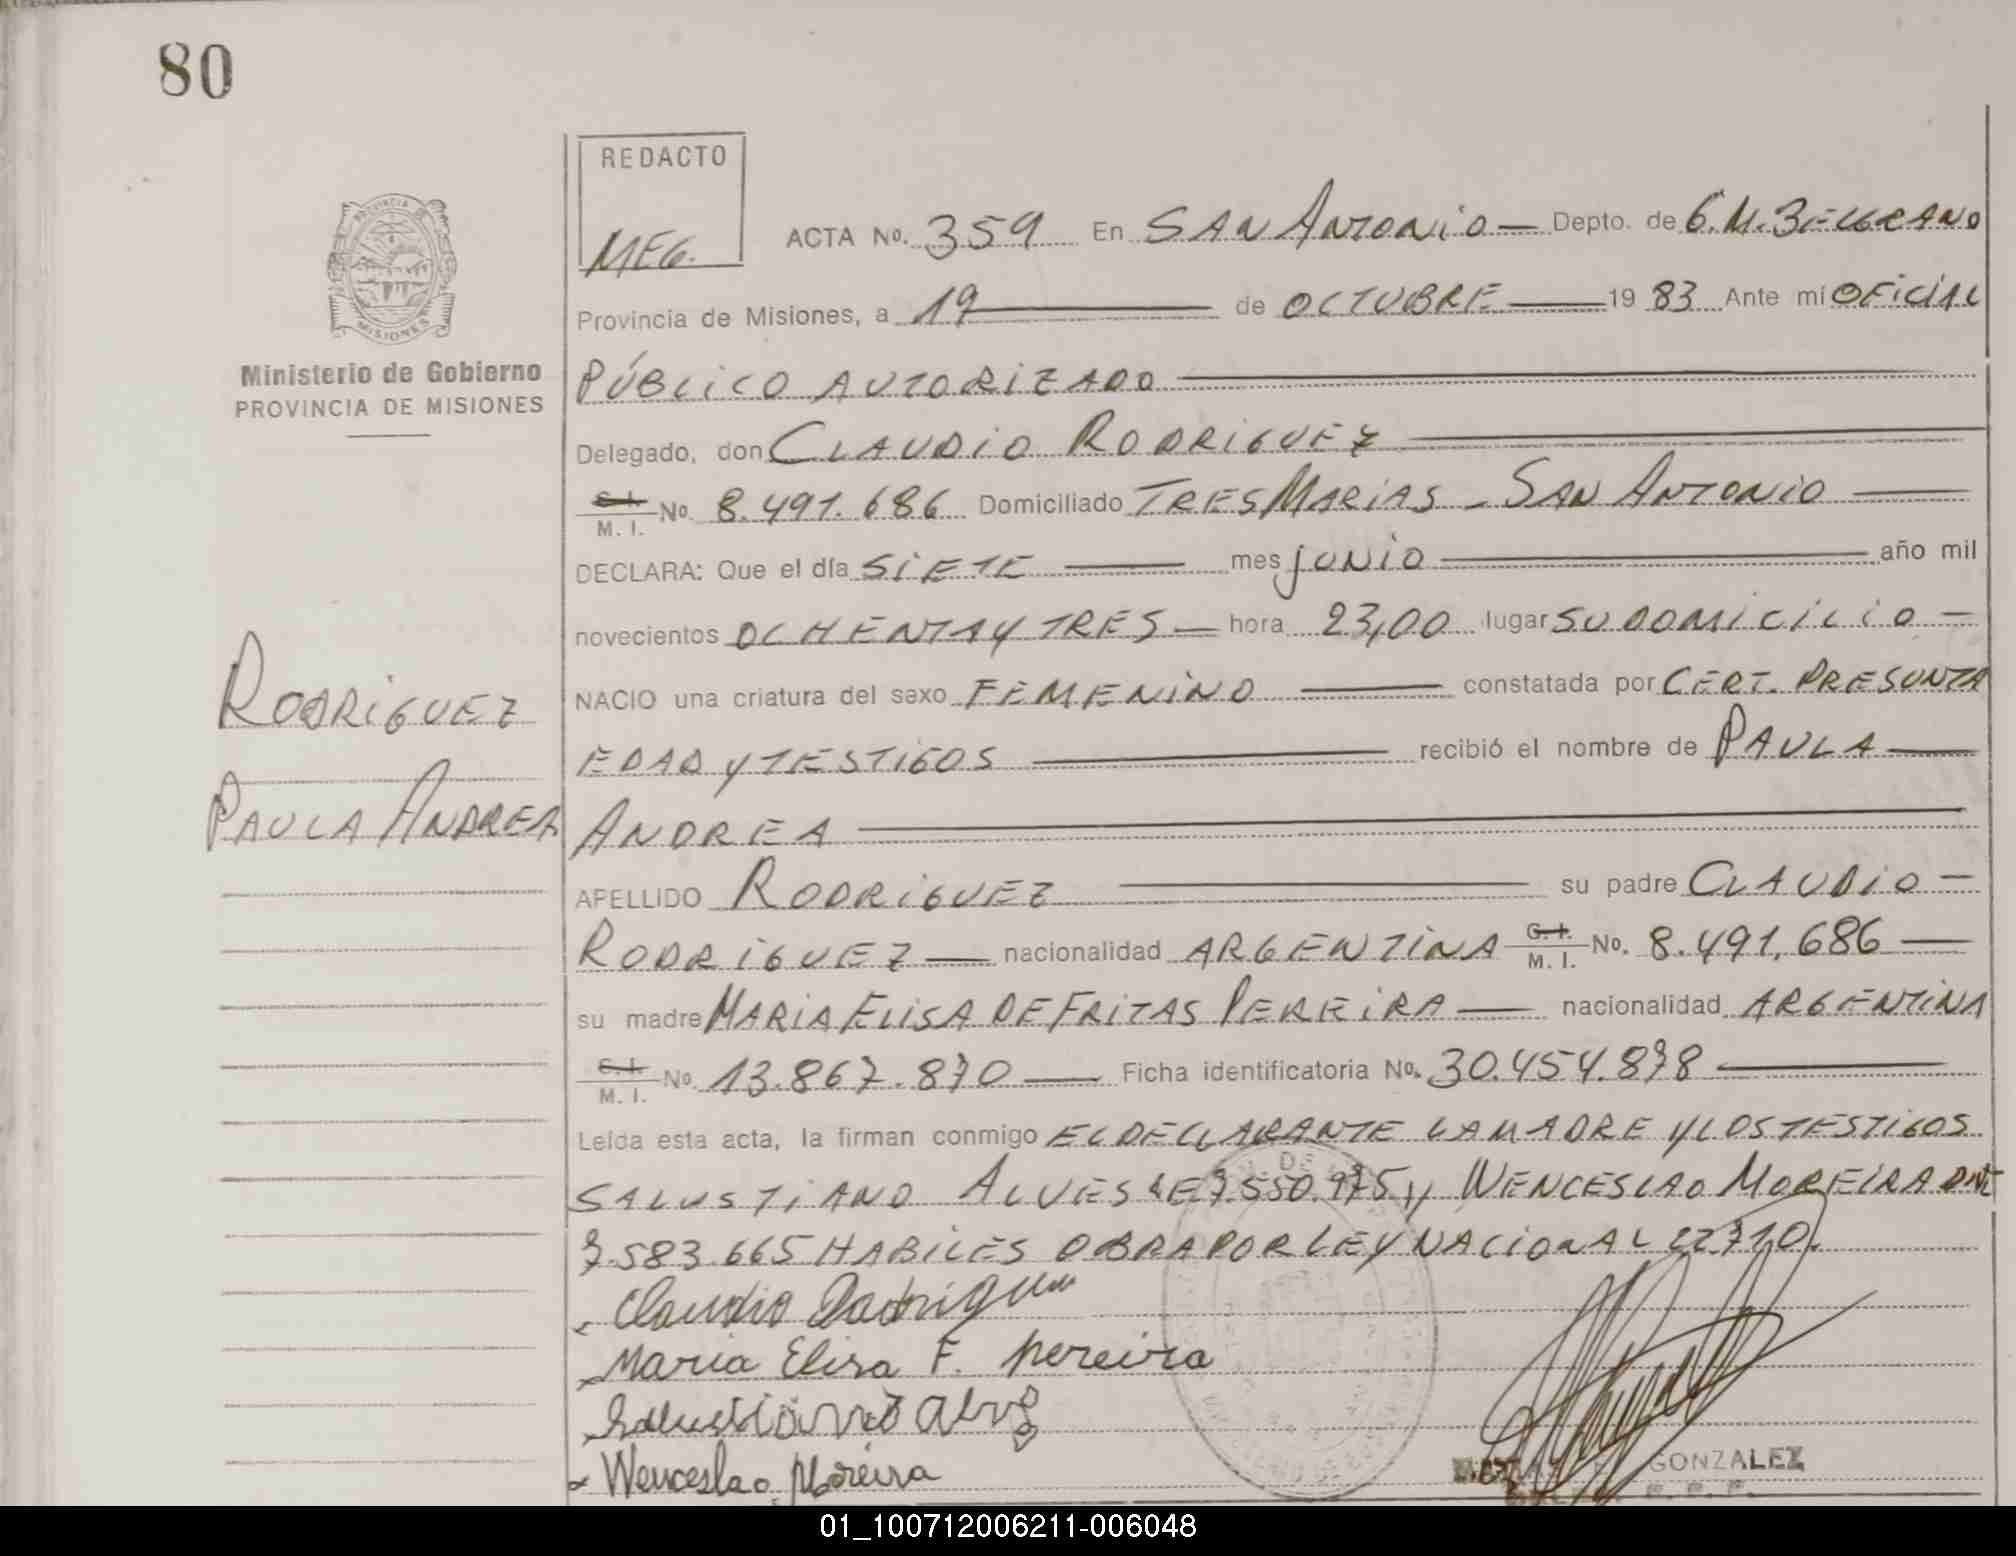 80
REDACTO
MEG.
PROVINCIA DE
MISIONES
Ministerio de Gobierno
PROVINCIA DE MISIONES
ACTA No. 359 En SAN ANTONIO — Depto. de G.M. BELGRANO
Provincia de Misiones, a 19 — de OCTUBRE — 19 83 Ante mi OFICIAL
PÚBLICO AUTORIZADO —
Delegado, don CLAUDIO RODRIGUEZ —
C. I. M. I. No 8.491.686 Domiciliado TRES MARIAS - SAN ANTONIO —
DECLARA: Que el día SIETE — mes JUNIO — año mil
novecientos OCHENTA Y TRES — hora 23,00 lugar SU DOMICILIO —
NACIO una criatura del sexo FEMENINO — constatada por CERT. PRESUNTA
EDAD Y TESTIGOS — recibió el nombre de PAULA —
ANDREA —
RODRIGUEZ
PAULA ANDREA
APELLIDO RODRIGUEZ — su padre CLAUDIO —
RODRIGUEZ — nacionalidad ARGENTINA C. I. M. I. No. 8.491.686 —
su madre MARIA ELISA DE FRITAS PEREIRA — nacionalidad ARGENTINA
C. I. M. I. No. 13.867.870 — Ficha identificatoria No. 30.454.878 —
Leída esta acta, la firman conmigo EL DECLARANTE LA MADRE Y LOS TESTIGOS
SALUSTIANO ALVES LE 7.550.975 y WENCESLAO MOREIRA DNI
7.583.665 HABILES OBRA POR LEY NACIONAL 22710.
Claudio Rodriguez
Maria Elisa F. Pereira
Salustiano Alves
Wenceslao Moreira
GONZALEZ
01_100712006211-006048